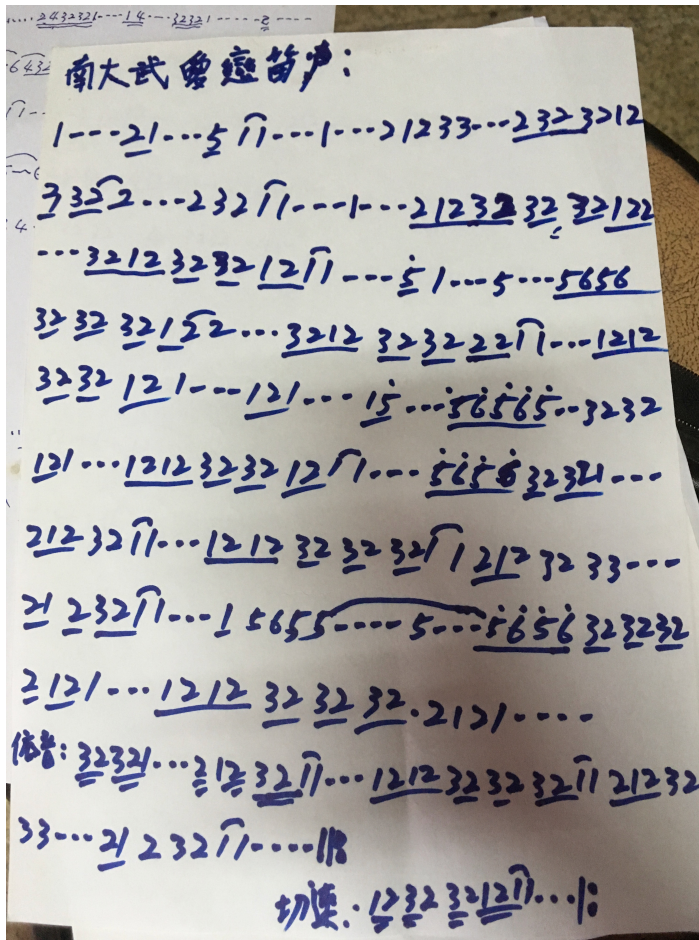 2432321 ···· 14 ··· 32321 ····· 2 ·····
6432
南大武 戀 笛
1···21···5 11···1···21233···2323212
3 322 2···2 3 2 11···1···21232 32 32122
···3212 32 32 1211····5 1···5···5656
32 32 32 122 2···3212 32 32 2211···1212
32 32 121···121···15···56565··3232
121···1212 32 32 1211···5656 32321···
212 3211···1212 32 32 3211 212 32 33···
21 23211···1 5655·····5···5656 32 32 32
2121···1212 32 32 32·2121····
32321···212 3211···1212 32 32 3211 212 32
33···21 2 3211····
切 : 1232 321211···